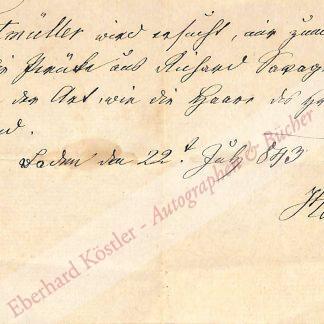 tmüller wird ersucht, mir zum
Perüke aus Richard Savag
der Art, wie die Haare des H
nd.
Baden den 22t July 893
Eberhard Köstler - Autographen & Bücher